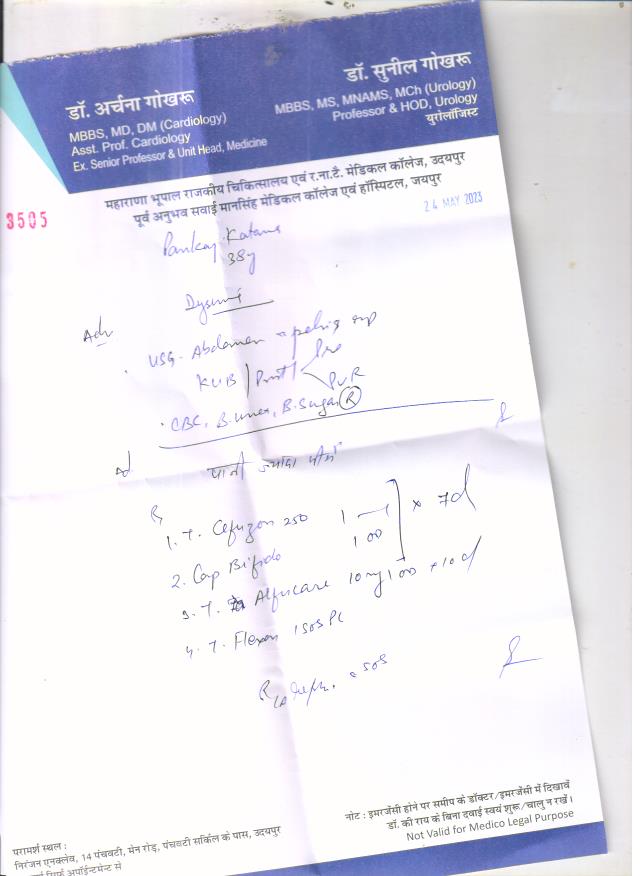 डॉ. अर्चना गोखरू
MBBS, MD, DM (Cardiology)
Asst. Prof. Cardiology
Ex. Senior Professor & Unit Head, Medicine
डॉ. सुनील गोखरू
MBBS, MS, MNAMS, MCh (Urology)
Professer & HOD, Urology
युरोलॉजिस्ट
महाराणा भूपाल राजकीय चिकित्सालय एवं र.ना.टै. मेडिकल कॉलेज, उदयपुर
पूर्व अनुभव सवाई मानसिंह मेडिकल कॉलेज एवं हॉस्पिटल, जयपुर
3505
24 MAY 2023
Pankaj
38y
Adv
USG- Abdomen
KUB
Pre
PVR
CBC, B. Sugar (R)
पानी ज्यादा पीयें
1. T. 250 1 x 7d
2. Cap Bifido
3. T. Alfucare 10mg x 10d
4. T. Flexon 1 SOS PC
SOS
नोट : इमरजेंसी होने पर समीप के डॉक्टर/इमरजेंसी में दिखावें
डॉ. की राय के बिना दवाई स्वयं शुरू/चालु न रखें।
Not Valid for Medico Legal Purpose
परामर्श स्थल :
निरंजन एनक्लेव, 14 पंचवटी, मेन रोड़, पंचवटी सर्किल के पास, उदयपुर
सिर्फ अपॉईन्टमेन्ट से